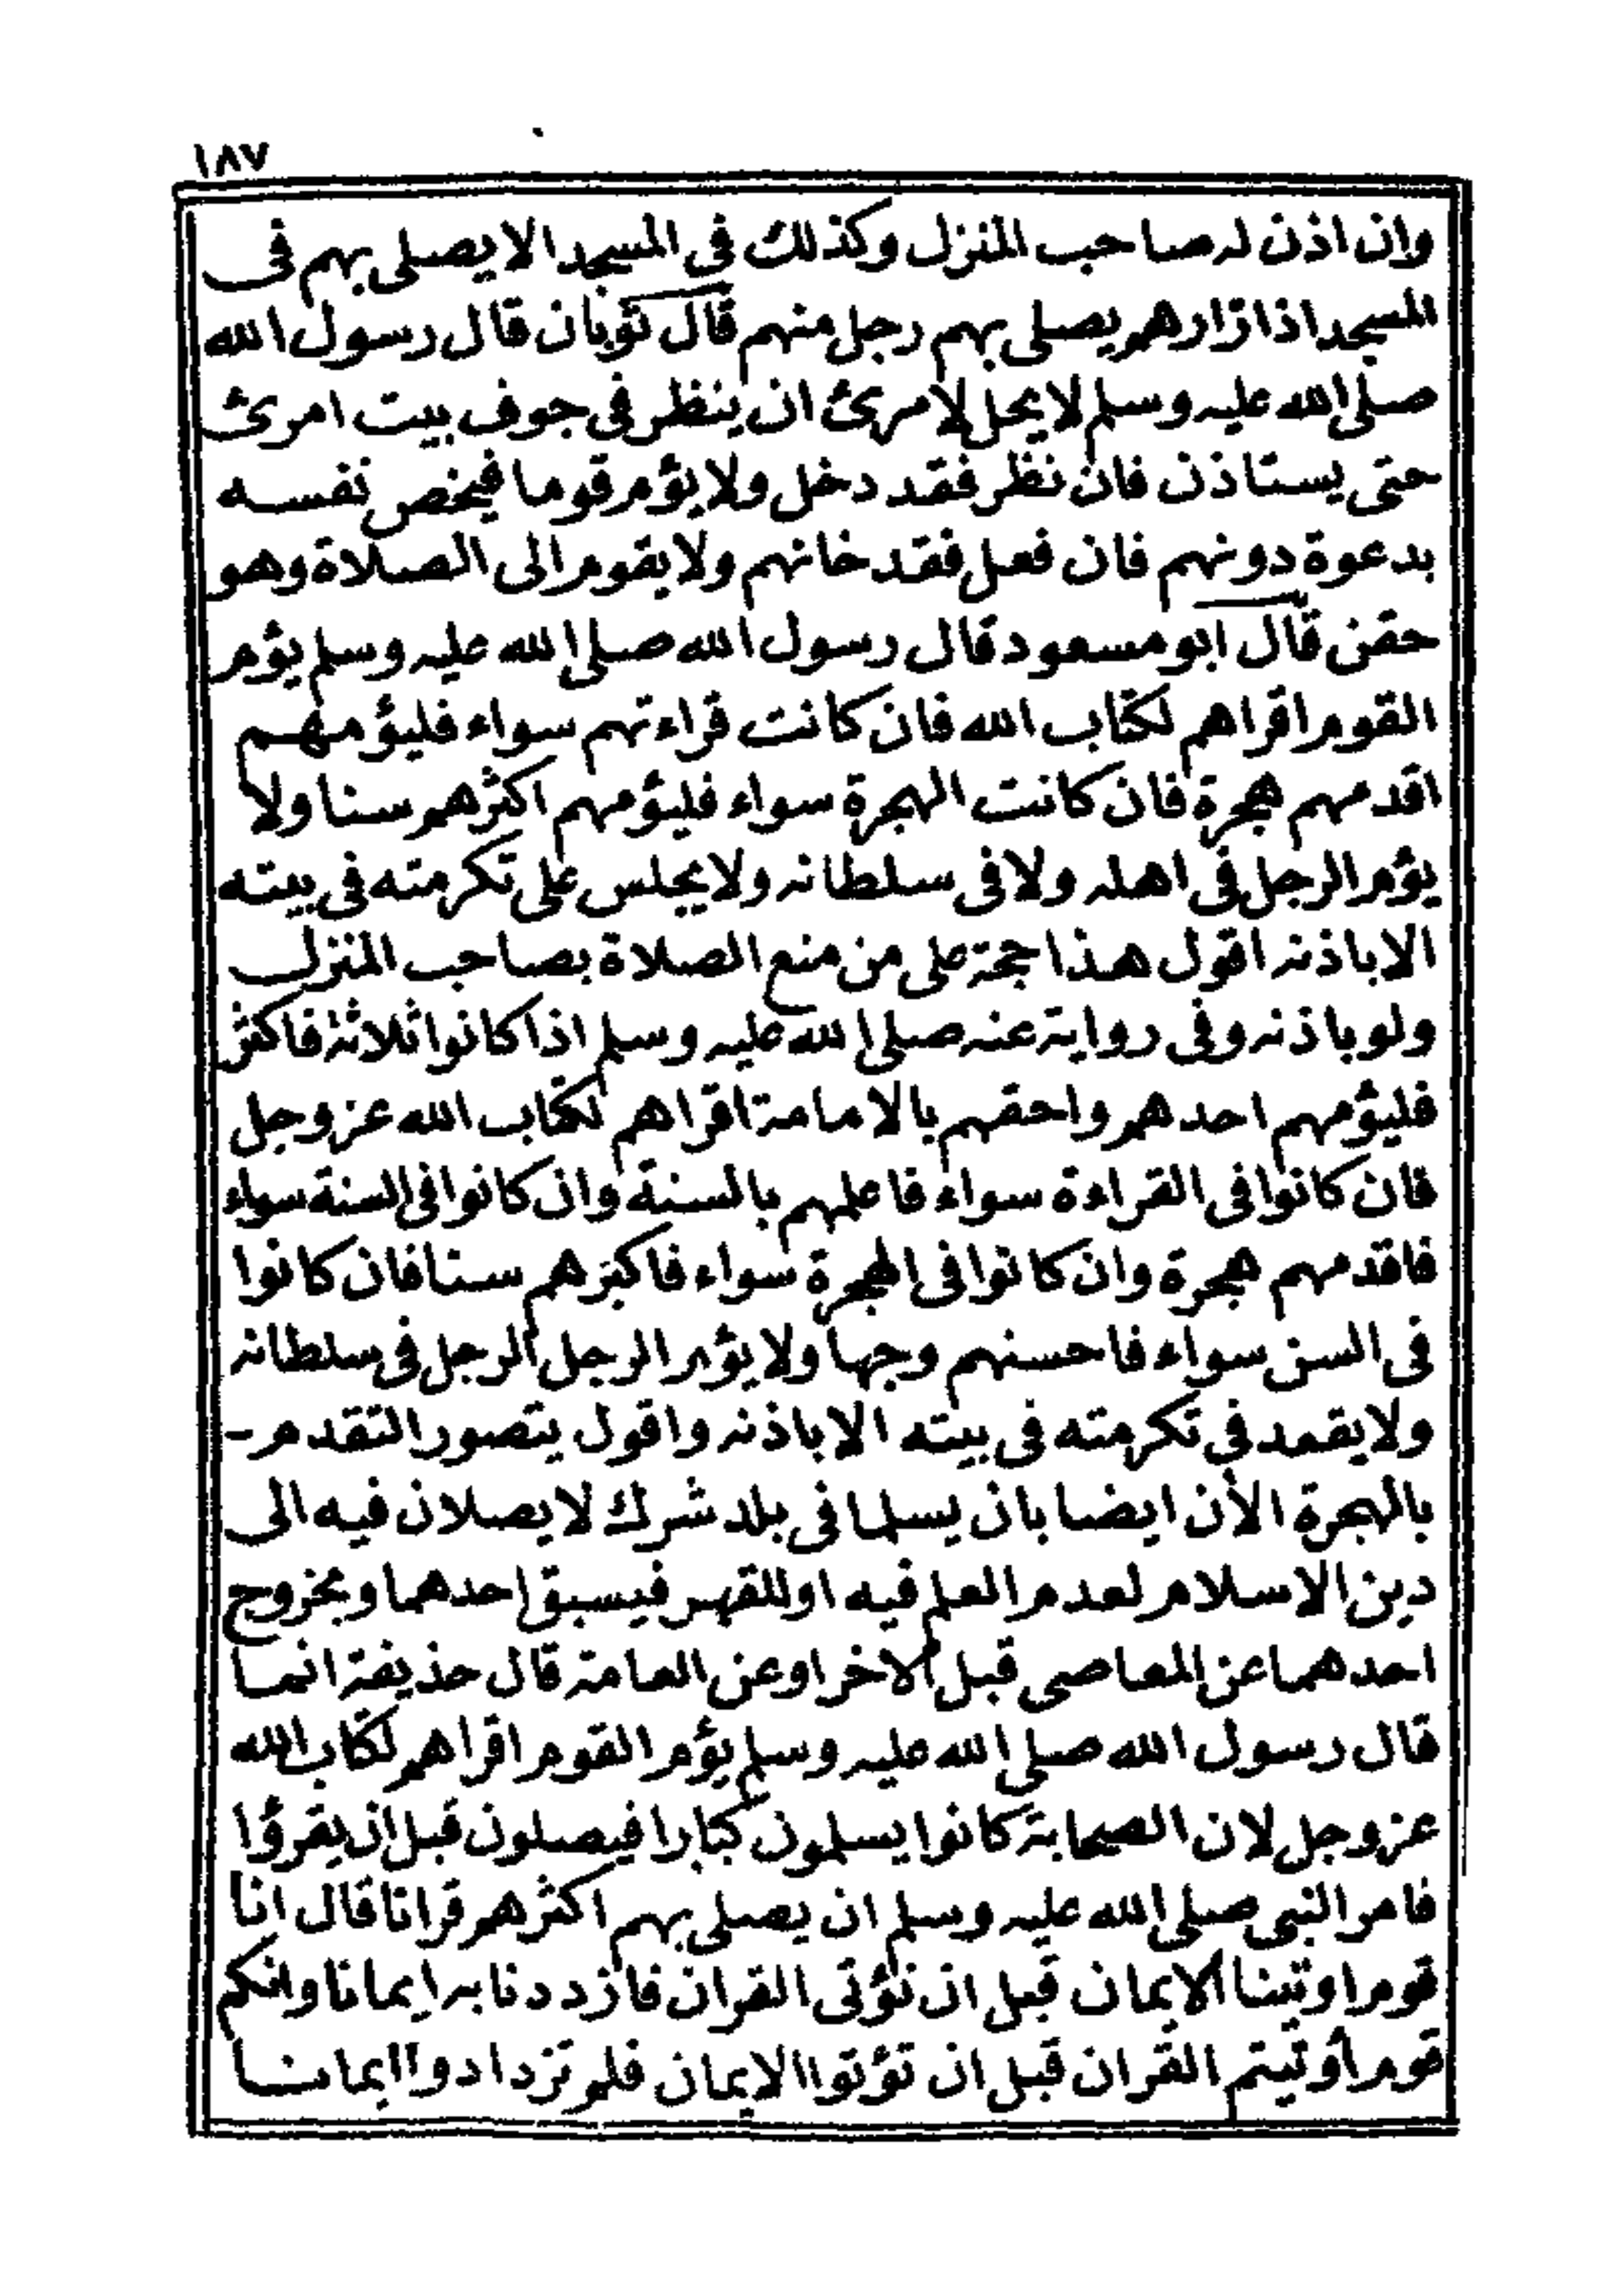 ١٨٧
وان اذن له صاحب المنزل وكذلك فى المسجد الا يصلى بهم فى
المسجد اذا زارهم يصلى بهم رجل منهم قال ثوبان قال رسول الله
صلى الله عليه وسلم لا يحل لامرئ ان ينظر فى جوف بيت امرئ
حتى يستاذن فان نظر فقد دخل ولا يؤم قوما فيخص نفسه
بدعوة دونهم فان فعل فقد خانهم ولا يقوم الى الصلاة وهو
حقن قال ابو مسعود قال رسول الله صلى الله عليه وسلم يؤم
القوم اقراهم لكتاب الله فان كانت قراءتهم سواء فليؤمهم
اقدمهم هجرة فان كانت الهجرة سواء فليؤمهم اكثرهم سنا ولا
يؤم الرجل فى اهله ولا فى سلطانه ولا يجلس على تكرمته فى بيته
الا باذنه اقول هذا حجة على من منع الصلاة بصاحب المنزل
ولو باذنه وفى رواية عنه صلى الله عليه وسلم اذا كانوا ثلاثة فاكثر
فليؤمهم احدهم واحقهم بالامامة اقراهم لكتاب الله عز وجل
فان كانوا فى القراءة سواء فاعلمهم بالسنة وان كانوا فى السنة سواء
فاقدمهم هجرة وان كانوا فى الهجرة سواء فاكبرهم سنا فان كانوا
فى السن سواء فاحسنهم وجها ولا يؤم الرجل الرجل فى سلطانه
ولا يقعد فى تكرمته فى بيته الا باذنه واقول يتصور التقدم -
بالهجرة الأن ايضا بان يسلما فى بلد شرك لا يصلان فيه الى
دين الاسلام لعدم العلم فيه او للقهر فيسبق احدهما وبخروج
احدهما عن المعاصى قبل الاخر او عن العامة قال حذيفة انما
قال رسول الله صلى الله عليه وسلم يؤم القوم اقراهم لكتاب الله
عز وجل لان الصحابة كانوا يسلمون كبارا فيصلون قبل ان يقرؤا
فامر النبى صلى الله عليه وسلم ان يصلى بهم اكثرهم قرانا قال انا
قوم اوتينا الايمان قبل ان نؤتى القران فازددنا به ايمانا وانكم
قوم أوتيتم القران قبل ان تؤتوا الايمان فلم تزدادوا ايمانا